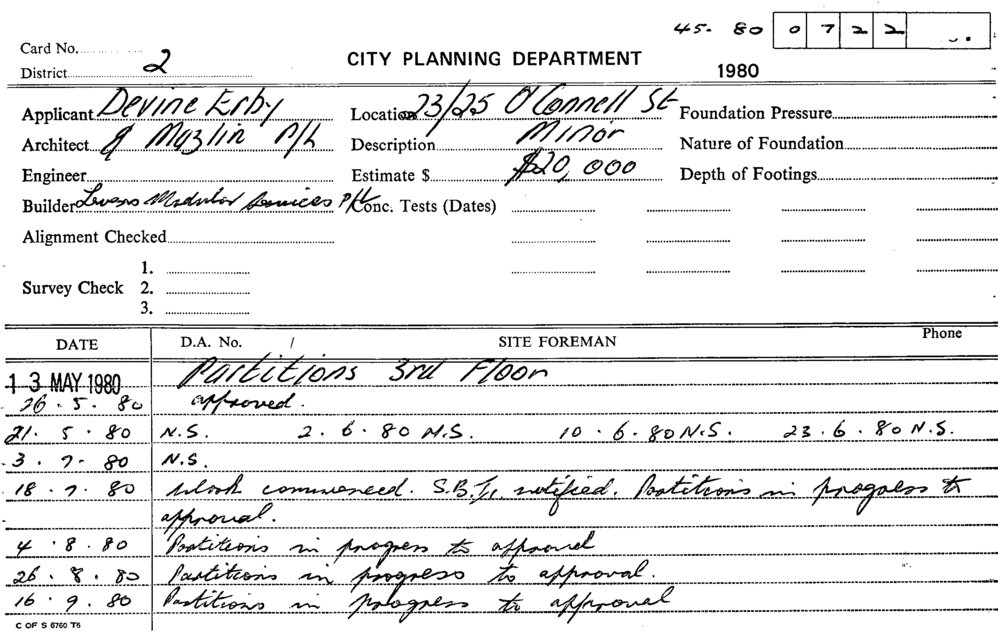 45-80 0722
Card No.
District 2
CITY PLANNING DEPARTMENT
1980
Applicant Devine Erby
Location 23/25 O'Connell St
Foundation Pressure
Architect & Mazlin P/L
Description Minor
Nature of Foundation
Engineer
Estimate $ $20,000
Depth of Footings
Builder Levens Modular Services P/L
Conc. Tests (Dates)
Alignment Checked
Survey Check 1.
2.
3.
DATE D.A. No. / SITE FOREMAN Phone
13 MAY 1980 Partitions 3rd Floor
26.5.80 approved.
21.5.80 N.S. 2.6.80 N.S. 10.6.80 N.S. 23.6.80 N.S.
3.7.80 N.S.
18.7.80 Work commenced. S.B.I. notified. Partitions in progress to
approval.
4.8.80 Partitions in progress to approval
26.8.80 Partitions in progress to approval.
16.9.80 Partitions in progress to approval
C OF S 6760 T6